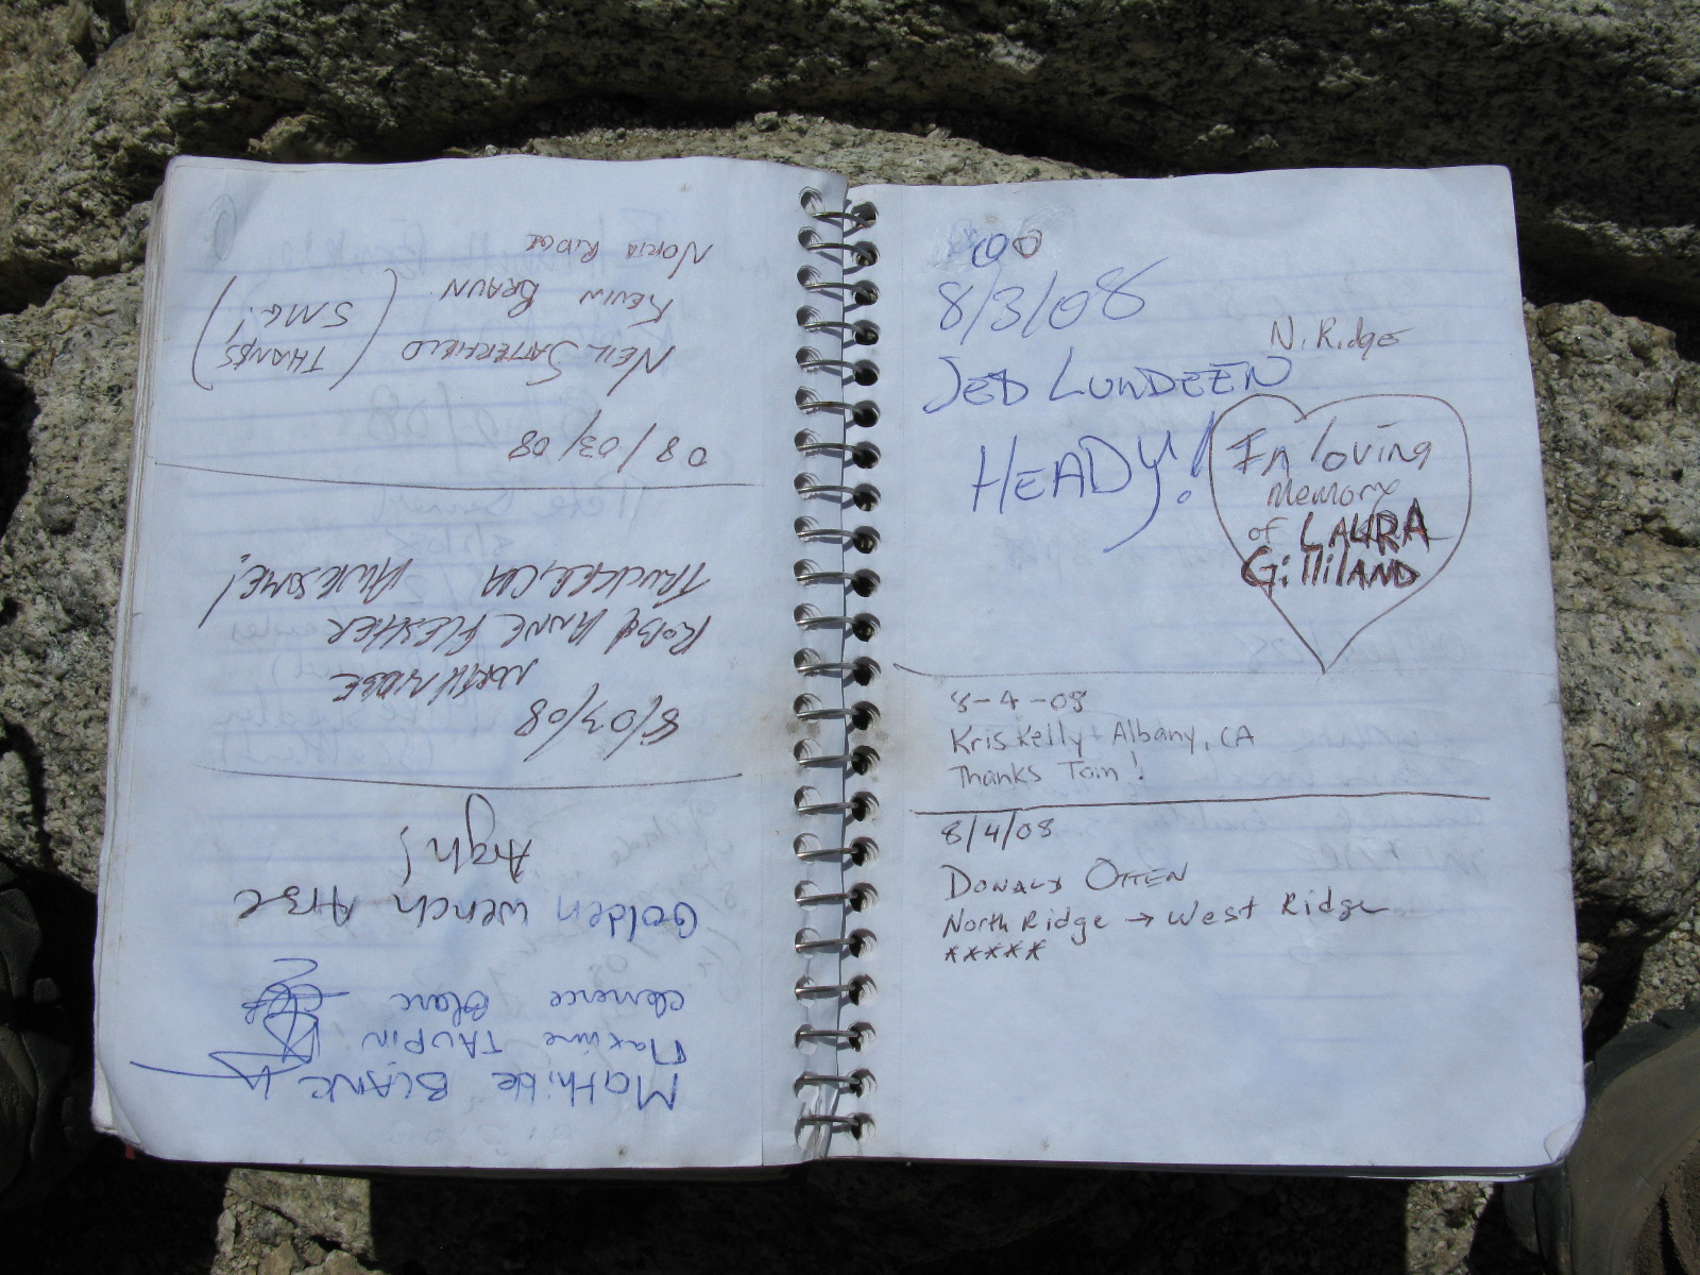 Mathilde BLANC
Maxime TAUPIN
clemence Blanc
Golden wench Arse
Argh!
8/03/08
NORTH RIDGE
ROB & ANNE FLESHER
TRUCKEE, CA AWESOME!
08/03/08
NEIL SATTERFIELD (THANKS
KEVIN BRAUN SMG!)
NORTH RIDGE
8/3/08
N. Ridge
JED LUNDEEN
HEADY!
In loving
memory
of LAURA
GilliLAND
8-4-08
Kris Kelly + Albany, CA
Thanks Tom!
8/4/08
DONALD OTTEN
North Ridge → West Ridge
*****